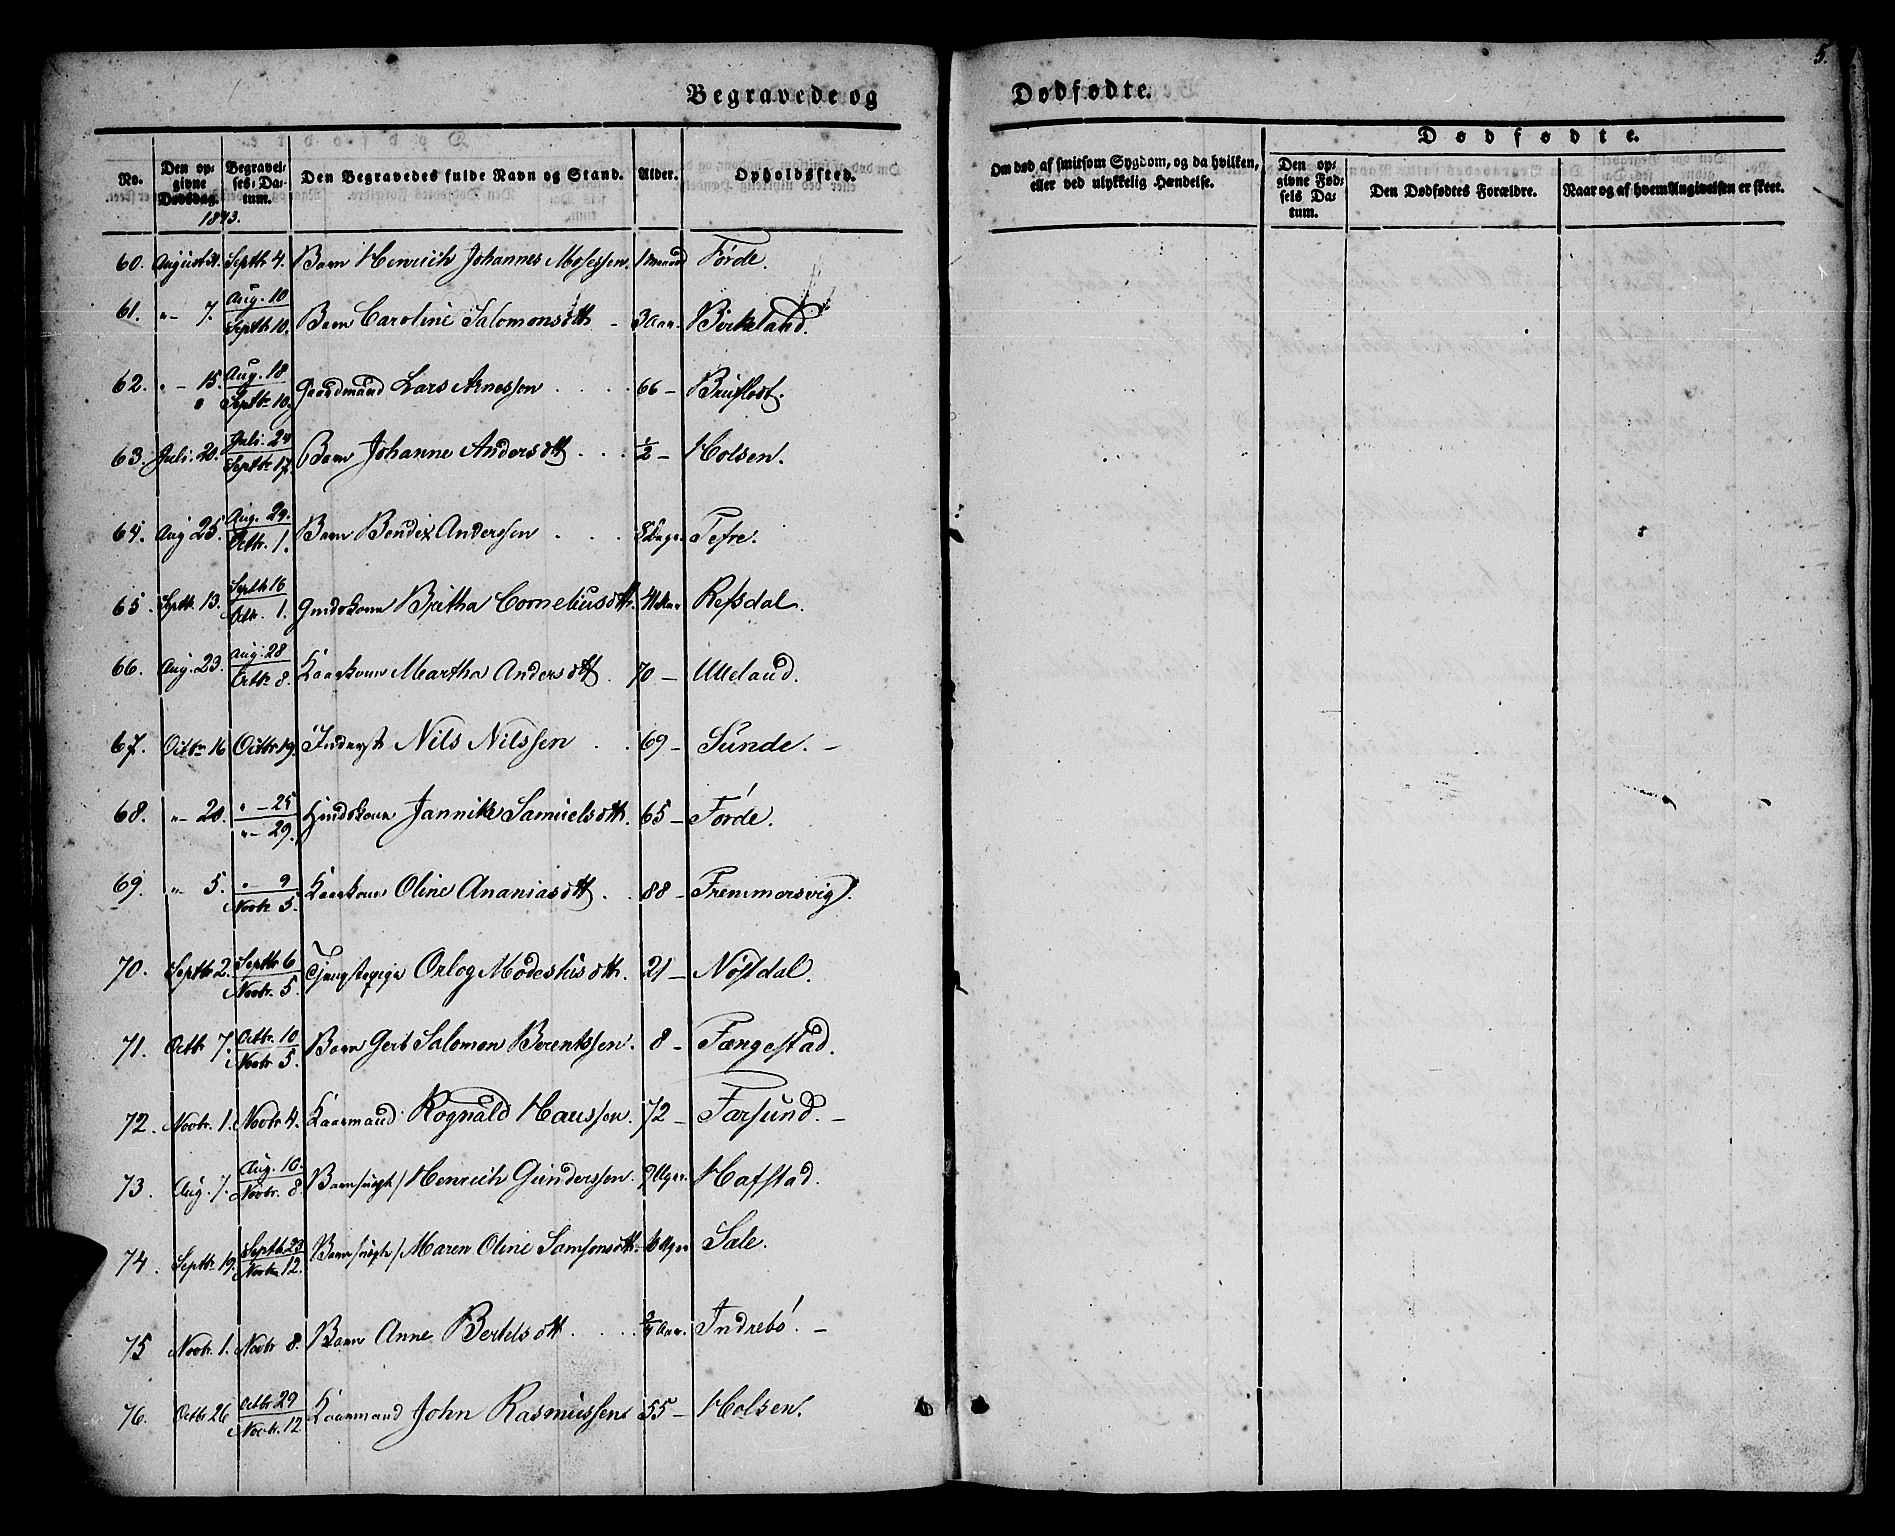 5.
Begravede og Dødfødte.
Dødfødte.
No. Den opgivne Dødsdag. Begravelses-Datum. Den Begravedes fulde Navn og Stand. Alder. Opholdssted. Om død af smitsom Sygdom, og da hvilken, eller ved ulykkelig Hændelse. Den opgivne Fødsels Datum. Den Dødfødtes Forældre. Naar og af hvem Angivelsen er skeet.
1843.
60. August 31. Septbr 4. Barn Henrich Johannes Mosessen. 1 maaned Førde.
61. "- 7. Aug. 10 Septbr 10. Barn Caroline Salomonsdtt - 3 Aar. Birkeland.
62. " - 15. Aug. 18 Septbr. 10. Gaardmand Lars Arnessen 66 - Bruflodt.
63. Juli. 20. Juli. 24 Septbr 17. Barn Johanne Andersdtt 1/2 - Holsen.
64. Aug 25. Aug. 29. Octbr. 1. Barn Bendix Anderssen 8 Dage. Tefre.
65. Septbr. 13. Septbr 16 Octbr. 1. Gmdskone Britha Corneliusdtt. 41 Aar Refsdal.
66. Aug. 23. Aug. 28 Octbr 8. Kaarkone Martha Andersdtt. 70 - Ulleland.
67. Octbr 16 Octbr 19. Inderst Nils Nilssen 69 - Sunde. -
68. "- 20. " - 25 "- 29. Gmdskone Jannike Samuelsdtt. 65 - Førde.
69. "- 5. " 9 Novbr 5. Kaarkone Oline Ananiasdtt. 88 - Fremmersvig.
70. Septbr 2. Septbr 6 Novbr. 5. Tjenestepige Orlog Modestusdtt. 21 - Nøstdal.
71. Octbr 7. Octbr. 10 Novbr 5. Barn Gert Salomon Berentssen. 8 - Fængestad.
72. Novbr. 1. Novbr 4. Kaarmand Rognald Hanssen. 72 - Farsund. -
73. Aug. 7. Aug. 10. Novbr. 8 Barn /uægte/ Henrich Gunderssen. 7 Uger. Hafstad.
74. Septbr 19. Septbr 23 Novbr 12. Barn /uægte/ Maren Oline Samsonsdtt. 6 Uger Sæle.
75 Novbr. 1. Novbr 8. Barn Anne Bertelsdtt 3/4 Aar. Indrebø. -
76. Octbr 26 Octbr 29 Novbr. 12 Kaarmand John Rasmussen 55 - Holsen.